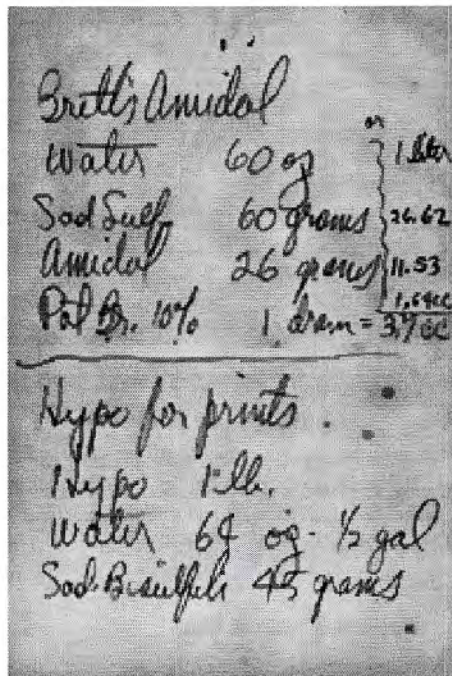 Brett's Amidol or
Water 60 oz 1 liter
Sod Sulf 60 grams 26.62
Amidol 26 grams 11.53
Pot Br. 10% 1 dram = 3.7 cc 1.64cc
Hypo for prints.
Hypo 1 lb.
Water 64 oz - ½ gal
Sod. Bisulfite 45 grams